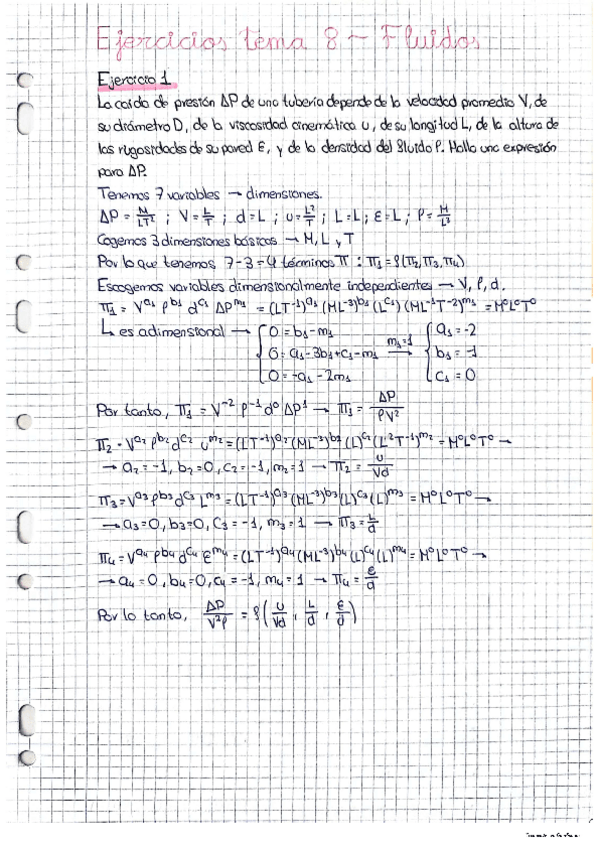 Ejercicios tema 8 ~ Fluidos
Ejercicio 1
La caída de presión ΔP de una tubería depende de la velocidad promedio V, de
su diámetro D, de la viscosidad cinemática υ, de su longitud L, de la altura de
las rugosidades de su pared ε, y de la densidad del fluido ρ. Halla una expresión
para ΔP.
Tenemos 7 variables → dimensiones.
ΔP = M/LT² ; V = L/T ; d = L ; υ = L²/T ; L = L ; ε = L ; ρ = M/L³
Cogemos 3 dimensiones básicas → M, L y T
Por lo que tenemos 7-3=4 términos π : π₁ = f(π₂, π₃, π₄)
Escogemos variables dimensionalmente independientes → V, ρ, d.
π₁ = V^a₁ ρ^b₁ d^c₁ ΔP^m₁ = (LT⁻¹)^a₁ (ML⁻³)^b₁ (L^c₁) (ML⁻¹T⁻²)^m₁ = M⁰L⁰T⁰
↳ es adimensional → { 0 = b₁ - m₁ { a₁ = -2
0 = a₁ - 3b₁ + c₁ - m₁ m₁=1 → b₁ = -1
0 = -a₁ - 2m₁ c₁ = 0
Por tanto, π₁ = V⁻² ρ⁻¹ d⁰ ΔP¹ → π₁ = ΔP/ρV²
π₂ = V^a₂ ρ^b₂ d^c₂ υ^m₂ = (LT⁻¹)^a₂ (ML⁻³)^b₂ (L)^c₂ (L²T⁻¹)^m₂ = M⁰L⁰T⁰ →
→ a₂ = -1, b₂ = 0, c₂ = -1, m₂ = 1 → π₂ = υ/Vd
π₃ = V^a₃ ρ^b₃ d^c₃ L^m₃ = (LT⁻¹)^a₃ (ML⁻³)^b₃ (L)^c₃ (L)^m₃ = M⁰L⁰T⁰ →
→ a₃ = 0, b₃ = 0, c₃ = -1, m₃ = 1 → π₃ = L/d
π₄ = V^a₄ ρ^b₄ d^c₄ ε^m₄ = (LT⁻¹)^a₄ (ML⁻³)^b₄ (L)^c₄ (L)^m₄ = M⁰L⁰T⁰ →
→ a₄ = 0, b₄ = 0, c₄ = -1, m₄ = 1 → π₄ = ε/d
Por lo tanto, ΔP/V²ρ = f(υ/Vd, L/d, ε/d)